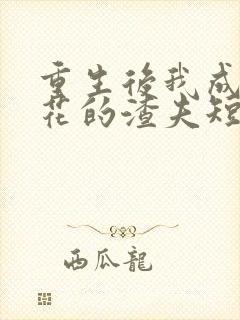 重生後我成
花的渣夫短
西瓜龍